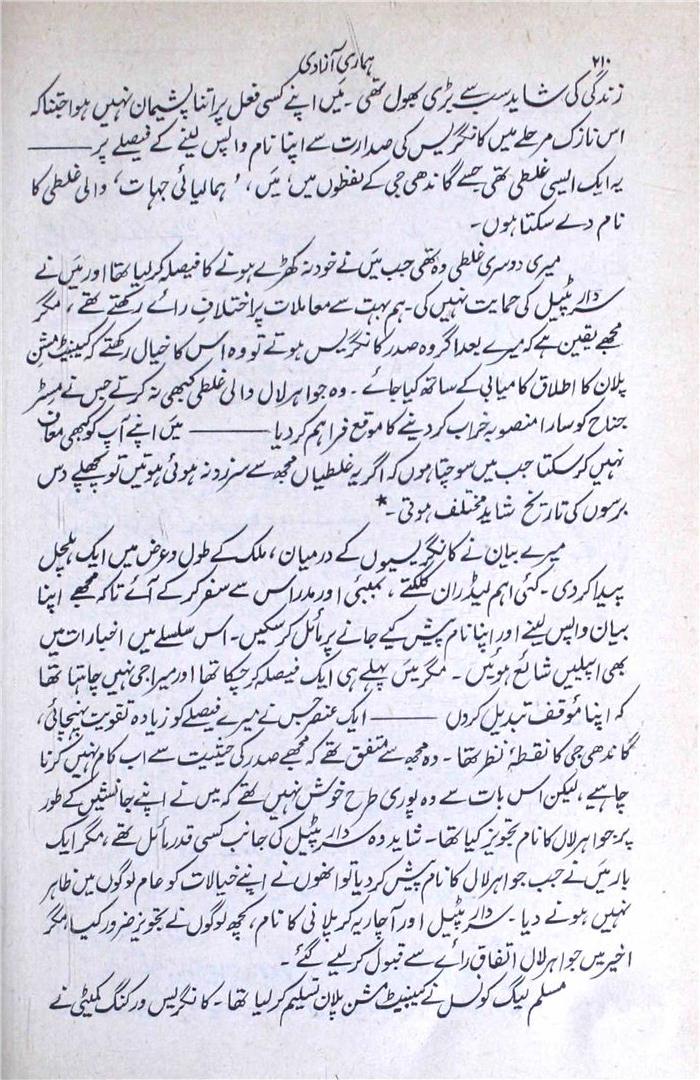 ۲۱۰
ہماری آزادی
زندگی کی شاید سب سے بڑی بھول تھی۔ میں اپنے کسی فعل پر اتنا پشیمان نہیں ہوا جتنا کہ
اس نازک مرحلے میں کانگریس کی صدارت سے اپنا نام واپس لینے کے فیصلے پر ———
یہ ایک ایسی غلطی تھی جسے گاندھی جی کے لفظوں میں، میَں، ’ہمالیائی جہات‘ والی غلطی کا
نام دے سکتا ہوں۔
میری دوسری غلطی وہ تھی جب میَں نے خود نہ کھڑے ہونے کا فیصلہ کر لیا تھا اور میَں نے
سردار پٹیل کی حمایت نہیں کی۔ ہم بہت سے معاملات پر اختلافِ رائے رکھتے تھے، مگر
مجھے یقین ہے کہ میرے بعد اگر وہ صدر کانگریس ہوتے تو وہ اس کا خیال رکھتے کہ کیبنیٹ مشن
پلان کا اطلاق کامیابی کے ساتھ کیا جائے۔ وہ جواہر لال والی غلطی کبھی نہ کرتے جس نے مسٹر
جناح کو سارا منصوبہ خراب کر دینے کا موقع فراہم کر دیا ——— میں اپنے آپ کو کبھی معاف
نہیں کر سکتا جب میں سوچتا ہوں کہ اگر یہ غلطیاں مجھ سے سرزد نہ ہوئی ہوتیں تو پچھلے دس
برسوں کی تاریخ شاید مختلف ہوتی۔*
میرے بیان نے کانگریسیوں کے درمیان، ملک کے طول و عرض میں ایک ہلچل
پیدا کر دی۔ کئی اہم لیڈران کلکتے، بمبئی اور مدراس سے سفر کر کے آئے تاکہ مجھے اپنا
بیان واپس لینے اور اپنا نام پیش کیے جانے پر مائل کر سکیں۔ اس سلسلے میں اخبارات میں
بھی اپیلیں شائع ہوئیں۔ مگر میَں پہلے ہی ایک فیصلہ کر چکا تھا اور میرا جی نہیں چاہتا تھا
کہ اپنا مؤقف تبدیل کر دوں ——— ایک عنصر جس نے میرے فیصلے کو زیادہ تقویت پہنچائی،
گاندھی جی کا نقطۂ نظر تھا۔ وہ مجھ سے متفق تھے کہ مجھے صدر کی حیثیت سے اب کام نہیں کرنا
چاہیے، لیکن اس بات سے وہ پوری طرح خوش نہیں تھے کہ میں نے اپنے جانشیں کے طور
پر جواہر لال کا نام تجویز کیا تھا۔ شاید وہ سردار پٹیل کی جانب کسی قدر مائل تھے، مگر ایک
بار میَں نے جب جواہر لال کا نام پیش کر دیا تو انھوں نے اپنے خیالات کو عام لوگوں میں ظاہر
نہیں ہونے دیا۔ سردار پٹیل اور آچاریہ کرپلانی کا نام، کچھ لوگوں نے تجویز ضرور کیا، مگر
اخیر میں جواہر لال اتفاقِ رائے سے قبول کر لیے گئے۔
مسلم لیگ کونسل نے کیبنیٹ مشن پلان تسلیم کر لیا تھا۔ کانگریس ورکنگ کمیٹی نے